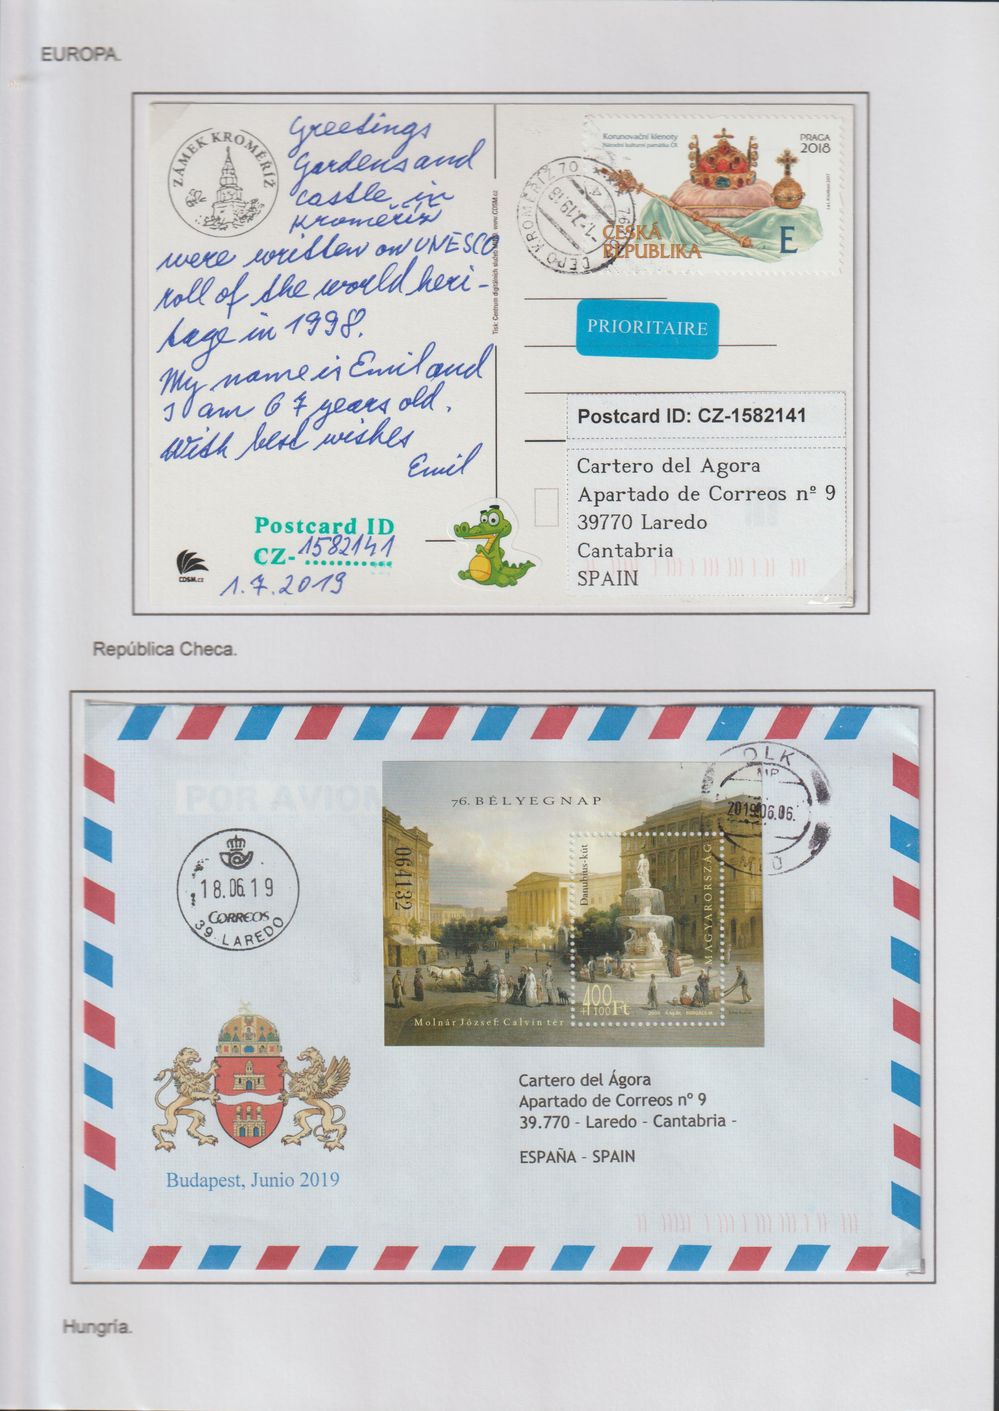 EUROPA.
ZÁMEK KROMĚŘÍŽ
Greetings
Gardens and
castle in
Kroměříž
were written on UNESCO
roll of the world heri-
tage in 1998.
My name is Emil and
I am 67 years old.
With best wishes
Emil
Postcard ID
CZ-1582141
1.7.2019
CDSM.cz
Tisk: Centrum digitálních služeb MUDr. www.CDSM.cz
Korunovační klenoty
Národní kulturní památka ČR
PRAGA
2018
ČESKÁ
REPUBLIKA
E
DEPO KROMĚŘÍŽ 70
-1.-7.19 18
PRIORITAIRE
Postcard ID: CZ-1582141
Cartero del Agora
Apartado de Correos nº 9
39770 Laredo
Cantabria
SPAIN
República Checa.
POR AVION
76. BÉLYEGNAP
064132
Danubius-kút
MAGYARORSZÁG
400
+100Ft
Molnár József: Calvin tér
OLK
MP
2019.06.06.
18.06.19
CORREOS
39-LAREDO
Cartero del Ágora
Apartado de Correos nº 9
39.770 - Laredo - Cantabria -
ESPAÑA - SPAIN
Budapest, Junio 2019
Hungría.